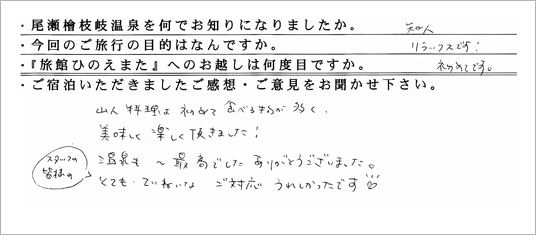 ・尾瀬檜枝岐温泉を何でお知りになりましたか。 知人
・今回のご旅行の目的はなんですか。 リラックスです!
・『旅館ひのえまた』へのお越しは何度目ですか。 初めてです。
・ご宿泊いただきましたご感想・ご意見をお聞かせ下さい。
山人料理は初めて食べるものが多く、
美味しく楽しく頂きました!
温泉も〜最高でした ありがとうございました。
スタッフの皆様の
とても、ていねいな ご対応 うれしかったです